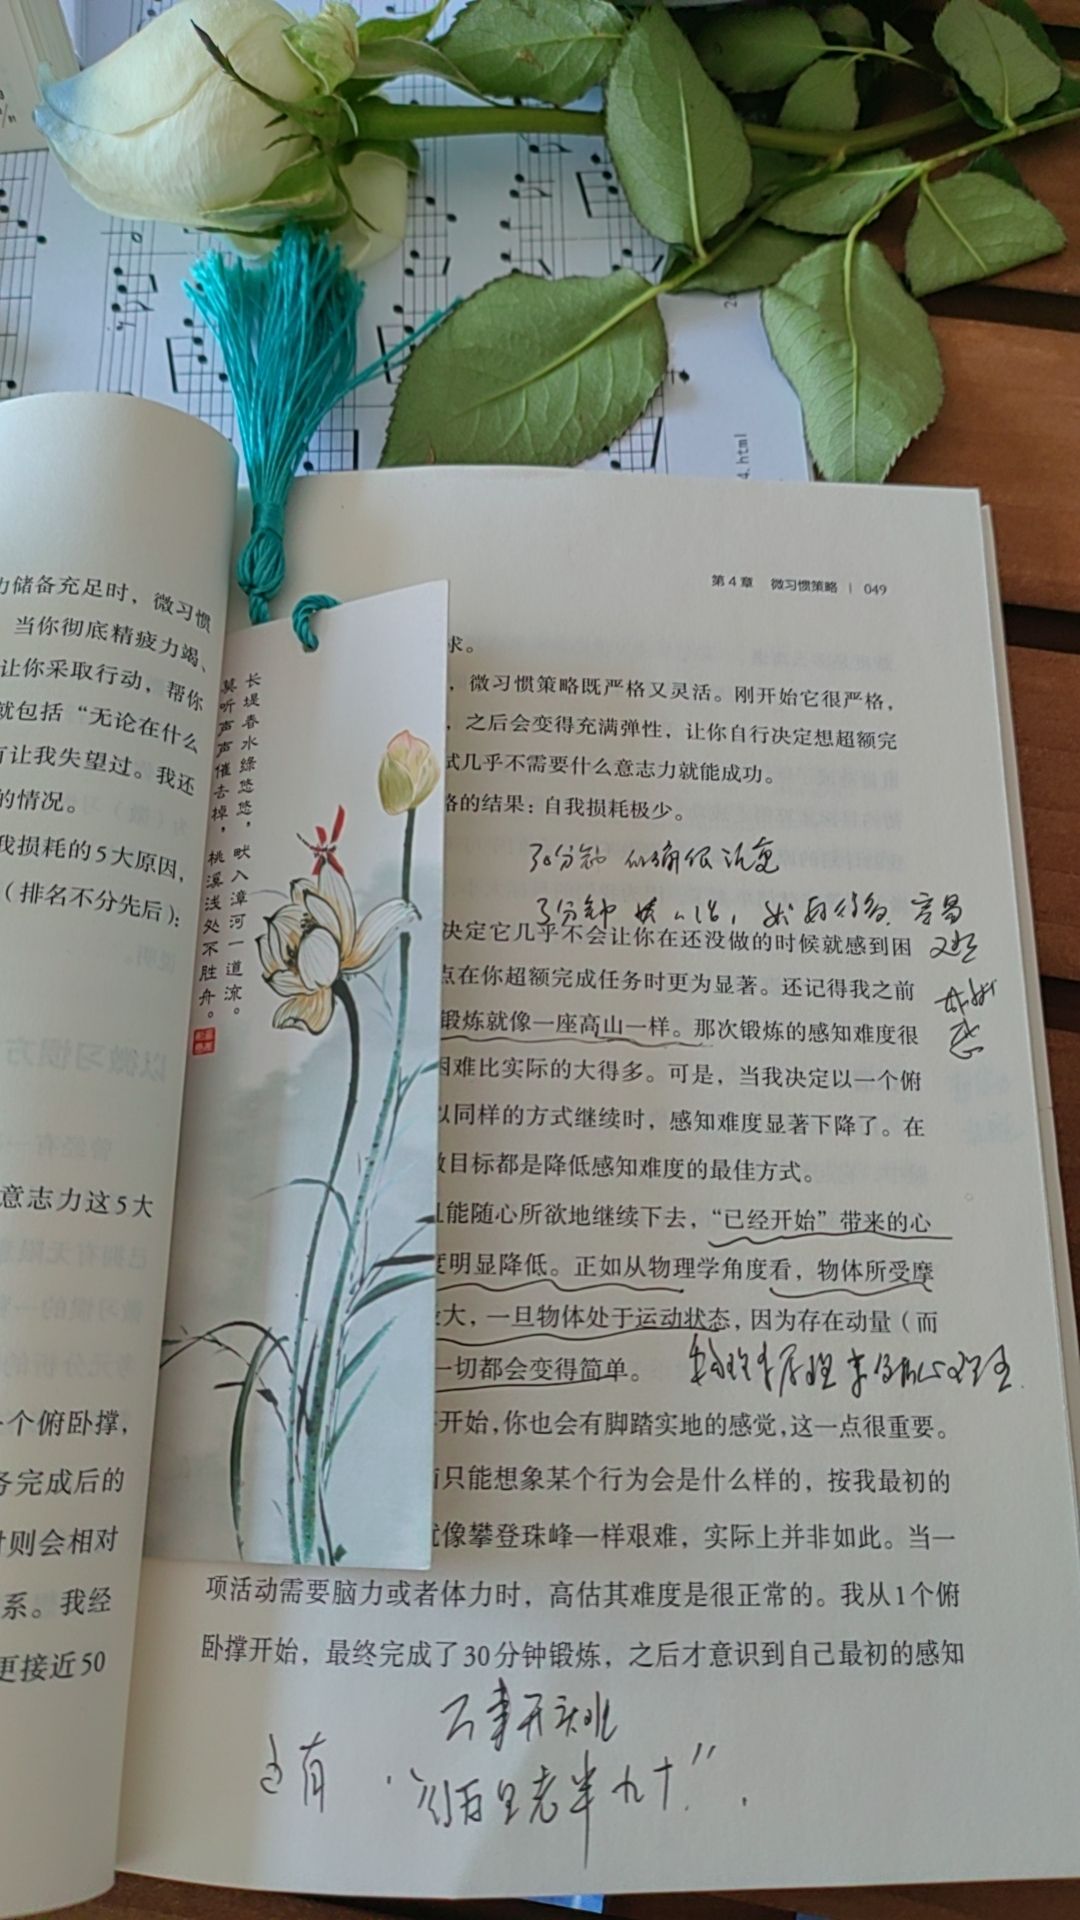 力储备充足时，微习惯
当你彻底精疲力竭、
让你采取行动，帮你
就包括“无论在什么
有让我失望过。我还
的情况。
我损耗的5大原因，
（排名不分先后）：
意志力这5大
一个俯卧撑，
务完成后的
时则会相对
系。我经
更接近50
长堤春水绿悠悠，畎入漳河一道流。
莫听声声催去棹，桃溪浅处不胜舟。
第4章 微习惯策略 | 049
求。
，微习惯策略既严格又灵活。刚开始它很严格，
，之后会变得充满弹性，让你自行决定想超额完
试几乎不需要什么意志力就能成功。
略的结果：自我损耗极少。
30分钟
3分钟
容易
决定它几乎不会让你在还没做的时候就感到困
点在你超额完成任务时更为显著。还记得我之前
锻炼就像一座高山一样。那次锻炼的感知难度很
困难比实际的大得多。可是，当我决定以一个俯
以同样的方式继续时，感知难度显著下降了。在
微目标都是降低感知难度的最佳方式。
且能随心所欲地继续下去，“已经开始”带来的心
度明显降低。正如从物理学角度看，物体所受摩
最大，一旦物体处于运动状态，因为存在动量（而
一切都会变得简单。
开始，你也会有脚踏实地的感觉，这一点很重要。
前只能想象某个行为会是什么样的，按我最初的
就像攀登珠峰一样艰难，实际上并非如此。当一
项活动需要脑力或者体力时，高估其难度是很正常的。我从1个俯
卧撑开始，最终完成了30分钟锻炼，之后才意识到自己最初的感知
万事开头难
还有“行百里者半九十”.
4.html